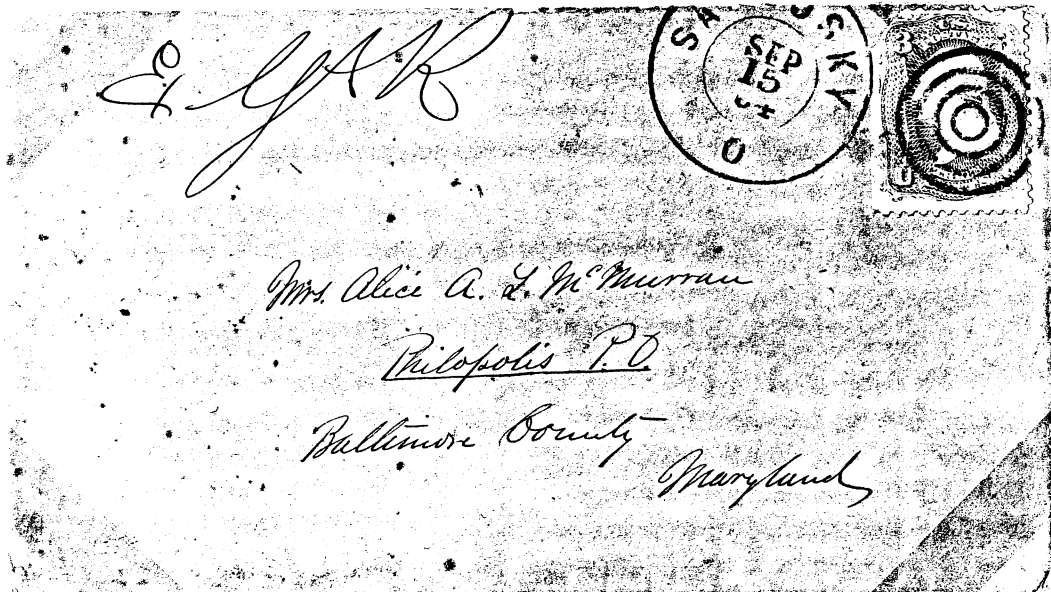 SA USKY
SEP
15
O
3
U
Mrs. Alice A. L. McMurran
Philopolis P.O.
Baltimore County
Maryland